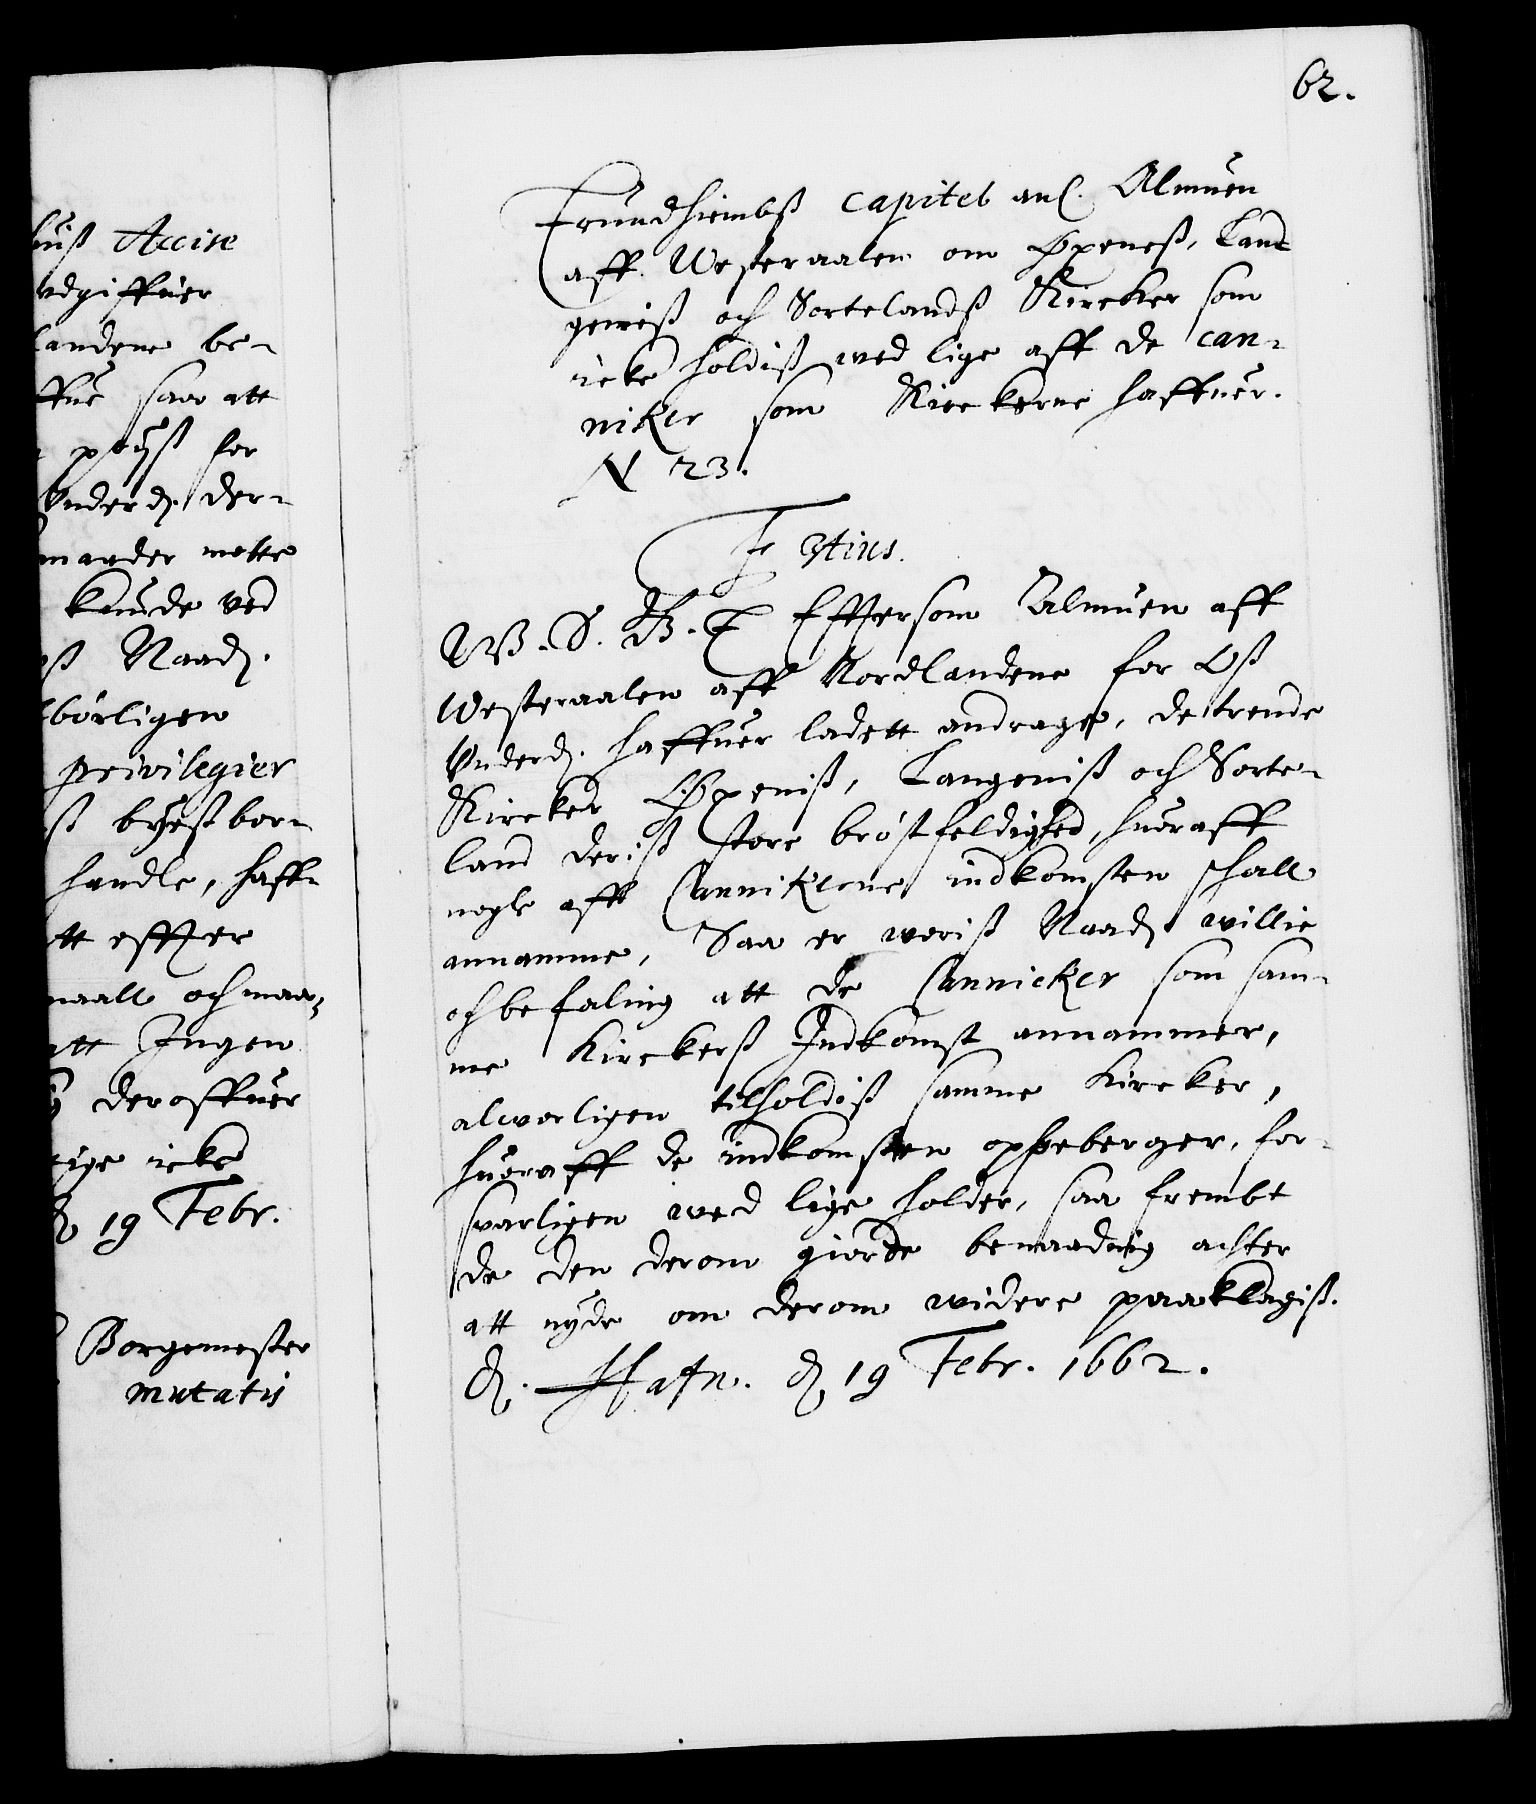 62.
Trundhiembß Capitel anl. Almuen
aff Westeraalen om Øxeneß, Land
geneß och Sortelandß Kircker som
icke holdiß ved lige aff de Can-
niker som Kirckerne haffuer.
N 23.
F 3tius.
W. S. G. T Effterson Almuen aff
Westeraalen aff Nordlandene for Oß
Underd. haffuer ladett andrage, de trende
Kircker Øxeniß, Langeniß och Sorte-
land deriß store brøstfeldighed, huoraff
nogle aff Cannikerne indkomsten schall
annamme, Saa er voriß Naadst willie
och befaling att de Cannicker som sam-
me Kirckerß Indkomst annammer,
alvorligen tilholdiß samme Kircker,
huoraff de indkomsten opheberger, for-
svarligen ved lige holder, saa frembt
de den derom giorde benaading achter
att nyde om derom widere paaklagiß.
D. Hafn. d 19 Febr. 1662.
huß Accise
udgiffuer
landene be-
ffue saa att
post for
Underd. der-
maader motte
kunde ved
oß Naadst
børligen
privilegier
handle, haff-
tt effter
maall och maa-
att Ingen
deroffuer
tige icke
d 19 Febr.
Borgemester
mutatis